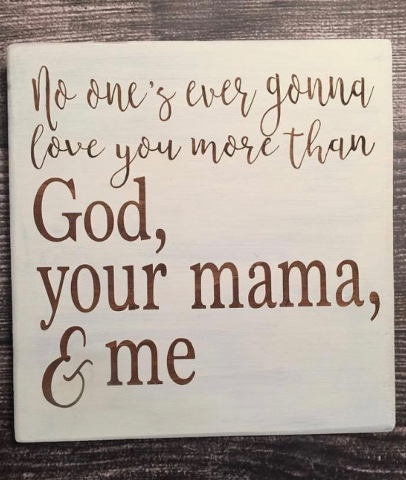 No one's ever gonna
love you more than
God,
your mama,
& me